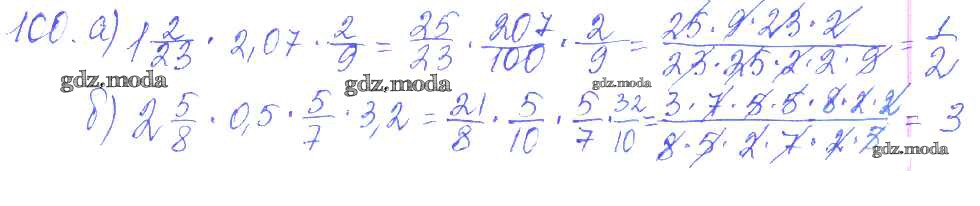 100. а) 1 2/23 · 2,07 · 2/9 = 25/23 · 207/100 · 2/9 = 25·9·23·2/23·25·2·2·9 = 1/2
gdz.moda gdz.moda gdz.moda
б) 2 5/8 · 0,5 · 5/7 · 3,2 = 21/8 · 5/10 · 5/7 · 32/10 = 3·7·5·5·8·2·2/8·5·2·7·2·5 = 3
gdz.moda